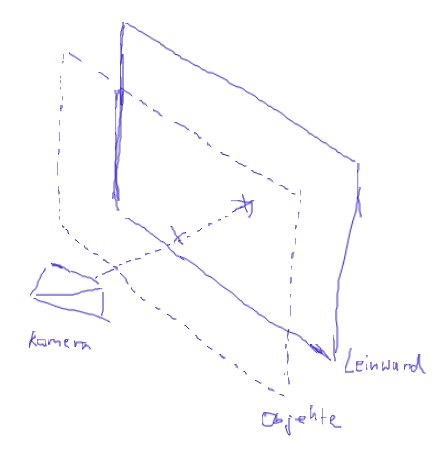 Kamera
Leinwand
Objekte